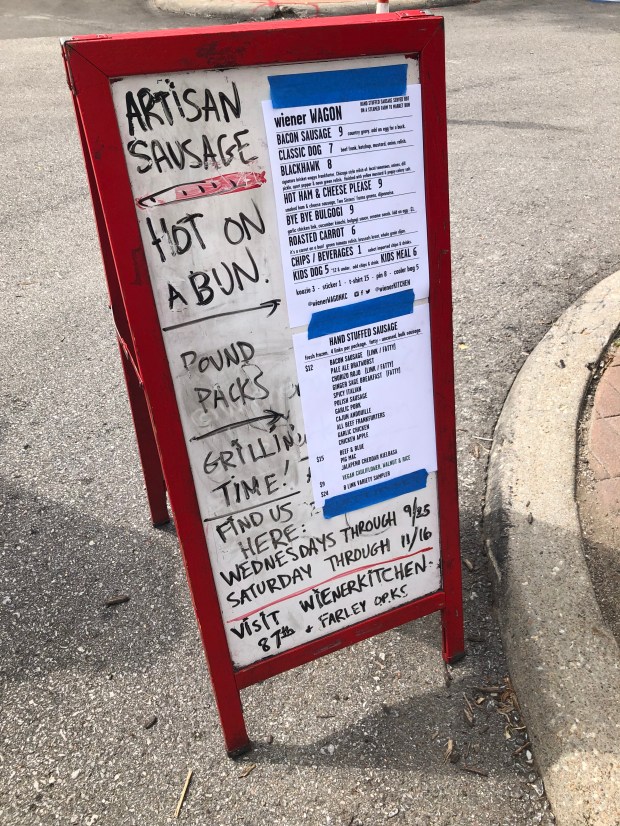 ARTISAN
SAUSAGE
HOT ON
A BUN!
POUND
PACKS
GRILLIN'
TIME!
FIND US
HERE:
WEDNESDAYS THROUGH 9/25
SATURDAY THROUGH 11/16
VISIT WIENERKITCHEN.
87th + FARLEY OP.KS
wiener WAGON
HAND STUFFED SAUSAGE SERVED HOT
ON A STEAMED FARM TO MARKET BUN
BACON SAUSAGE 9 country gravy, add an egg for a buck.
CLASSIC DOG 7 beef frank, ketchup, mustard, onion, relish.
BLACKHAWK 8
HOT HAM & CHEESE PLEASE 9
BYE BYE BULGOGI 9
ROASTED CARROT 6
CHIPS / BEVERAGES 1 select imported chips & drinks.
KIDS DOG 5 add chips & drink. KIDS MEAL 6
koozie 3 - sticker 1 - t-shirt 25 - pin 8 - cooler bag 5
@wienerWAGONKC @wienerKITCHEN
HAND STUFFED SAUSAGE
fresh frozen. 4 links per package. fatty - uncased, bulk sausage.
$12 BACON SAUSAGE (LINK / FATTY)
PALE ALE BRATWURST
CHORIZO ROJO (LINK / FATTY)
GINGER SAGE BREAKFAST (FATTY)
SPICY ITALIAN
POLISH SAUSAGE
GARLIC PORK
CAJUN ANDOUILLE
ALL BEEF FRANKFURTERS
GARLIC CHICKEN
CHICKEN APPLE
$15 BEEF & BLUE
PIG MAC
JALAPENO CHEDDAR KIELBASA
$9 VEGAN CAULIFLOWER, WALNUT & RICE
$24 8 LINK VARIETY SAMPLER